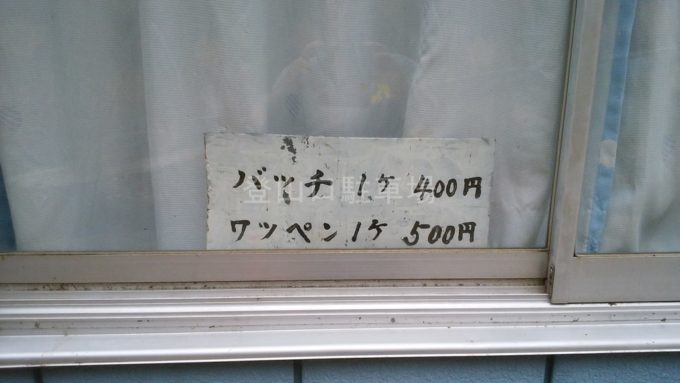 バッチ 1ケ 400円
ワッペン 1ケ 500円